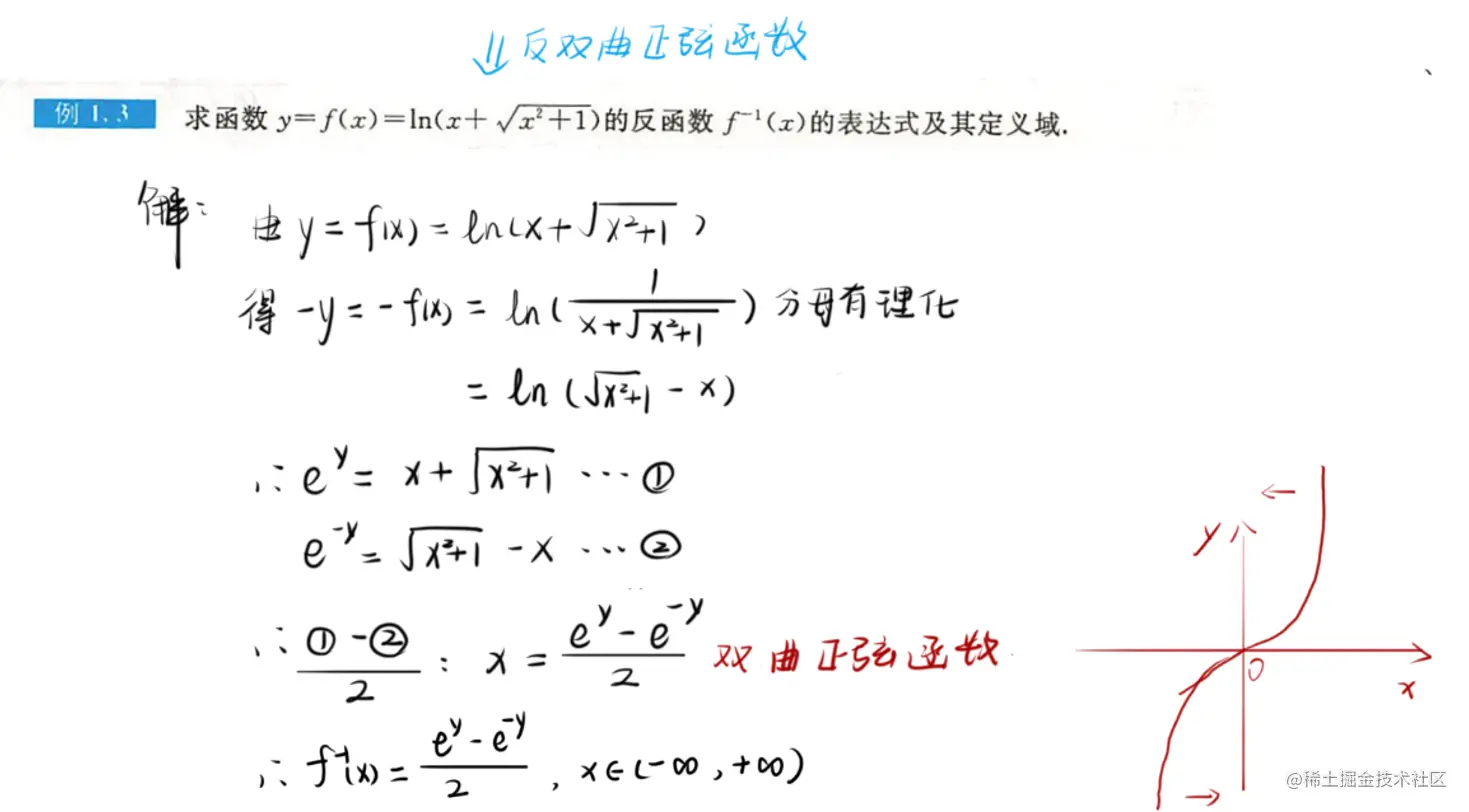 ⇓反双曲正弦函数
例 1.3 求函数 y=f(x)=ln(x+√(x²+1))的反函数 f⁻¹(x)的表达式及其定义域.
解: 由 y = f(x) = ln(x+√(x²+1))
得 -y = -f(x) = ln(1/(x+√(x²+1))) 分母有理化
= ln(√(x²+1) - x)
∴ e^y = x+√(x²+1) ··· ①
e^-y = √(x²+1) - x ··· ②
∴ (①-②)/2 : x = (e^y - e^-y)/2 双曲正弦函数
∴ f⁻¹(x) = (e^y - e^-y)/2 , x∈(-∞,+∞)
←
y
O
x
→
@稀土掘金技术社区